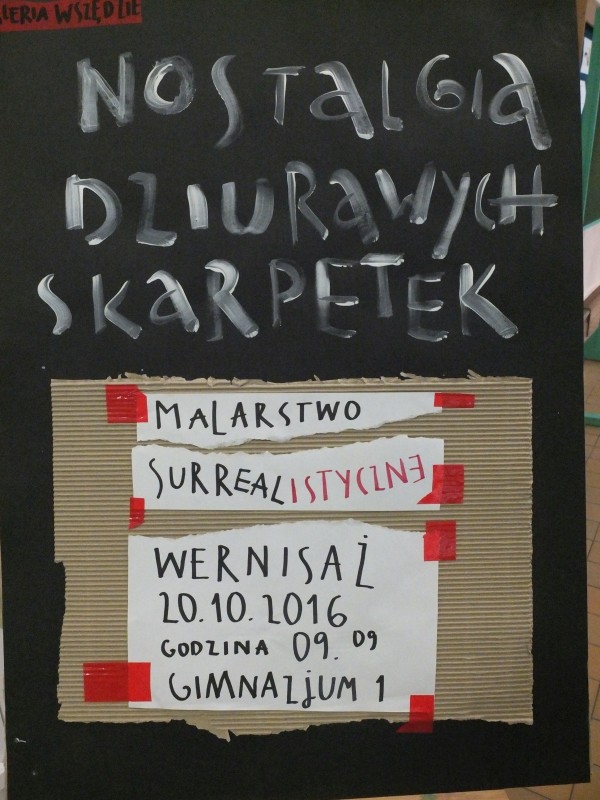 LERIA WSZĘDZIE
NOSTALGIA
DZIURAWYCH
SKARPETEK
MALARSTWO
SURREALISTYCZNE
WERNISAŻ
20.10.2016
GODZINA 09.09
GIMNAZJUM 1